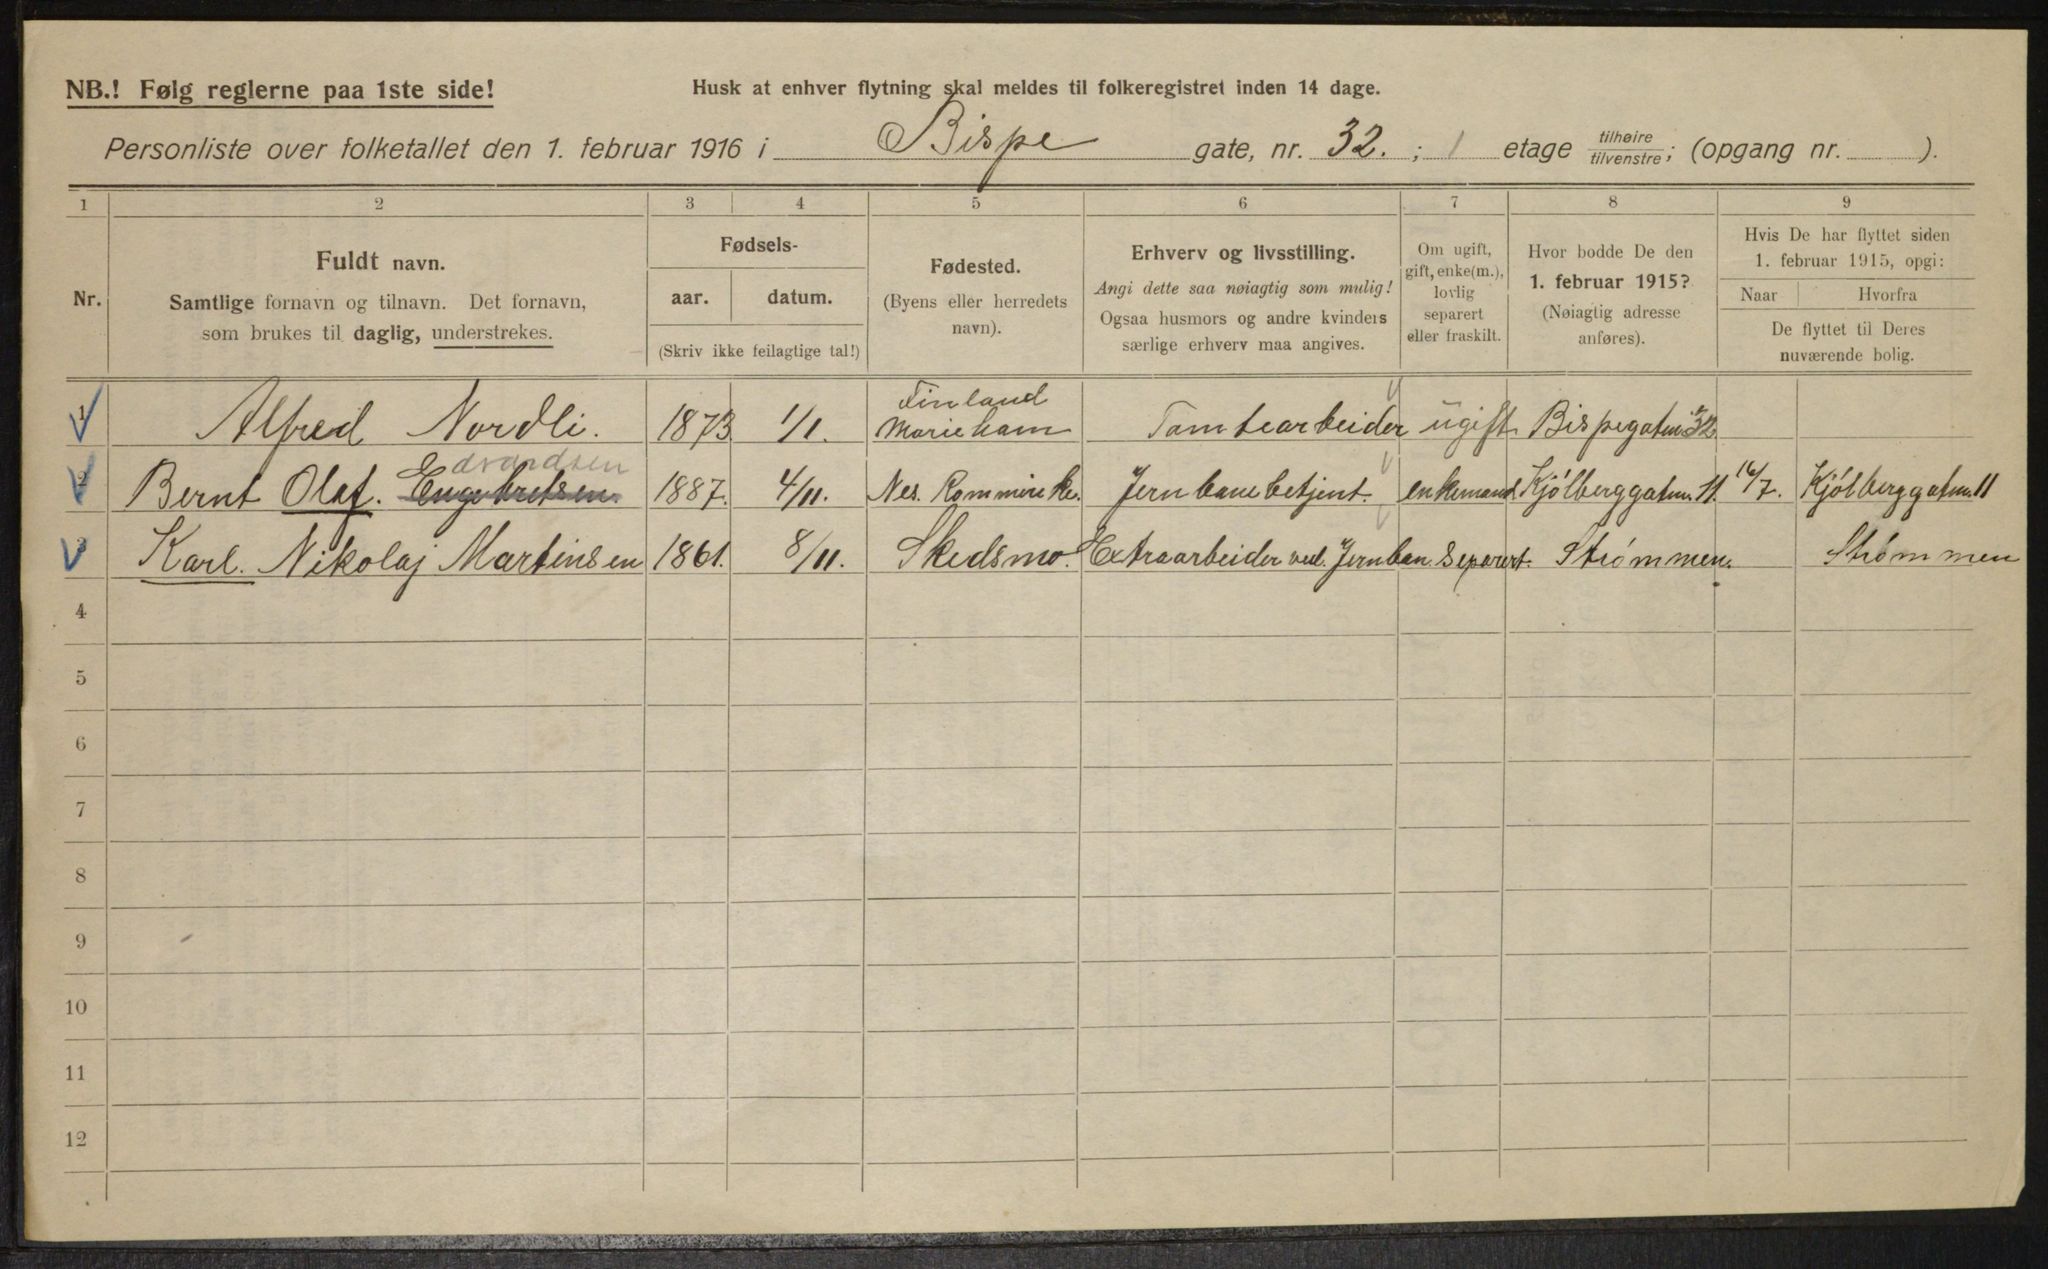 NB.! Følg reglerne paa 1ste side!
Husk at enhver flytning skal meldes til folkeregistret inden 14 dage.
Personliste over folketallet den 1. februar 1916 i Bispe gate, nr. 32. ; 1 etage tilhøire/tilvenstre; (opgang nr. ).
1 2 3 4 5 6 7 8 9
Nr.
Fuldt navn.
Samtlige fornavn og tilnavn. Det fornavn,
som brukes til daglig, understrekes.
Fødsels-
aar. datum.
(Skriv ikke feilagtige tal!)
Fødested.
(Byens eller herredets
navn).
Erhverv og livsstilling.
Angi dette saa nøiagtig som mulig!
Ogsaa husmors og andre kvinders
særlige erhverv maa angives.
Om ugift,
gift, enke(m.),
lovlig
separert
eller fraskilt.
Hvor bodde De den
1. februar 1915?
(Nøiagtig adresse
anføres).
Hvis De har flyttet siden
1. februar 1915, opgi:
Naar Hvorfra
De flyttet til Deres
nuværende bolig.
1 Alfred Nordli. 1873 1/1. Finland Marieham Tomtearbeider ugift Bispegaten 32
2 Bernt Olaf. Engebretsen. Edvardsen 1887. 4/11. Nes. Rommerike. Jernbanebetjent. enkemand. Kjólberggaten. 11. 16/7. Kjólberggaten. 11
3 Karl. Nikolaj Martinsen 1861. 8/11. Skedsmo. Extraarbeider ved. Jernban. Separert. Strømmen. Strømmen
4
5
6
7
8
9
10
11
12